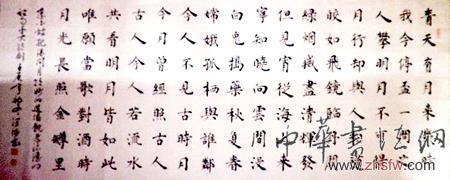 青天有月来幾時
我今停杯一問之
人攀明月不可得
月行却與人相隨
皎如飛鏡臨丹闕
綠烟滅盡清輝發
但見宵從海上來
寧知曉向雲間沒
白兔搗藥秋復春
嫦娥孤棲與誰鄰
今人不見古時月
今月曾經照古人
古人今人若流水
共看明月皆如此
唯願當歌對酒時
月光長照金罇里
中華書法網
http://www.zhsfw.com